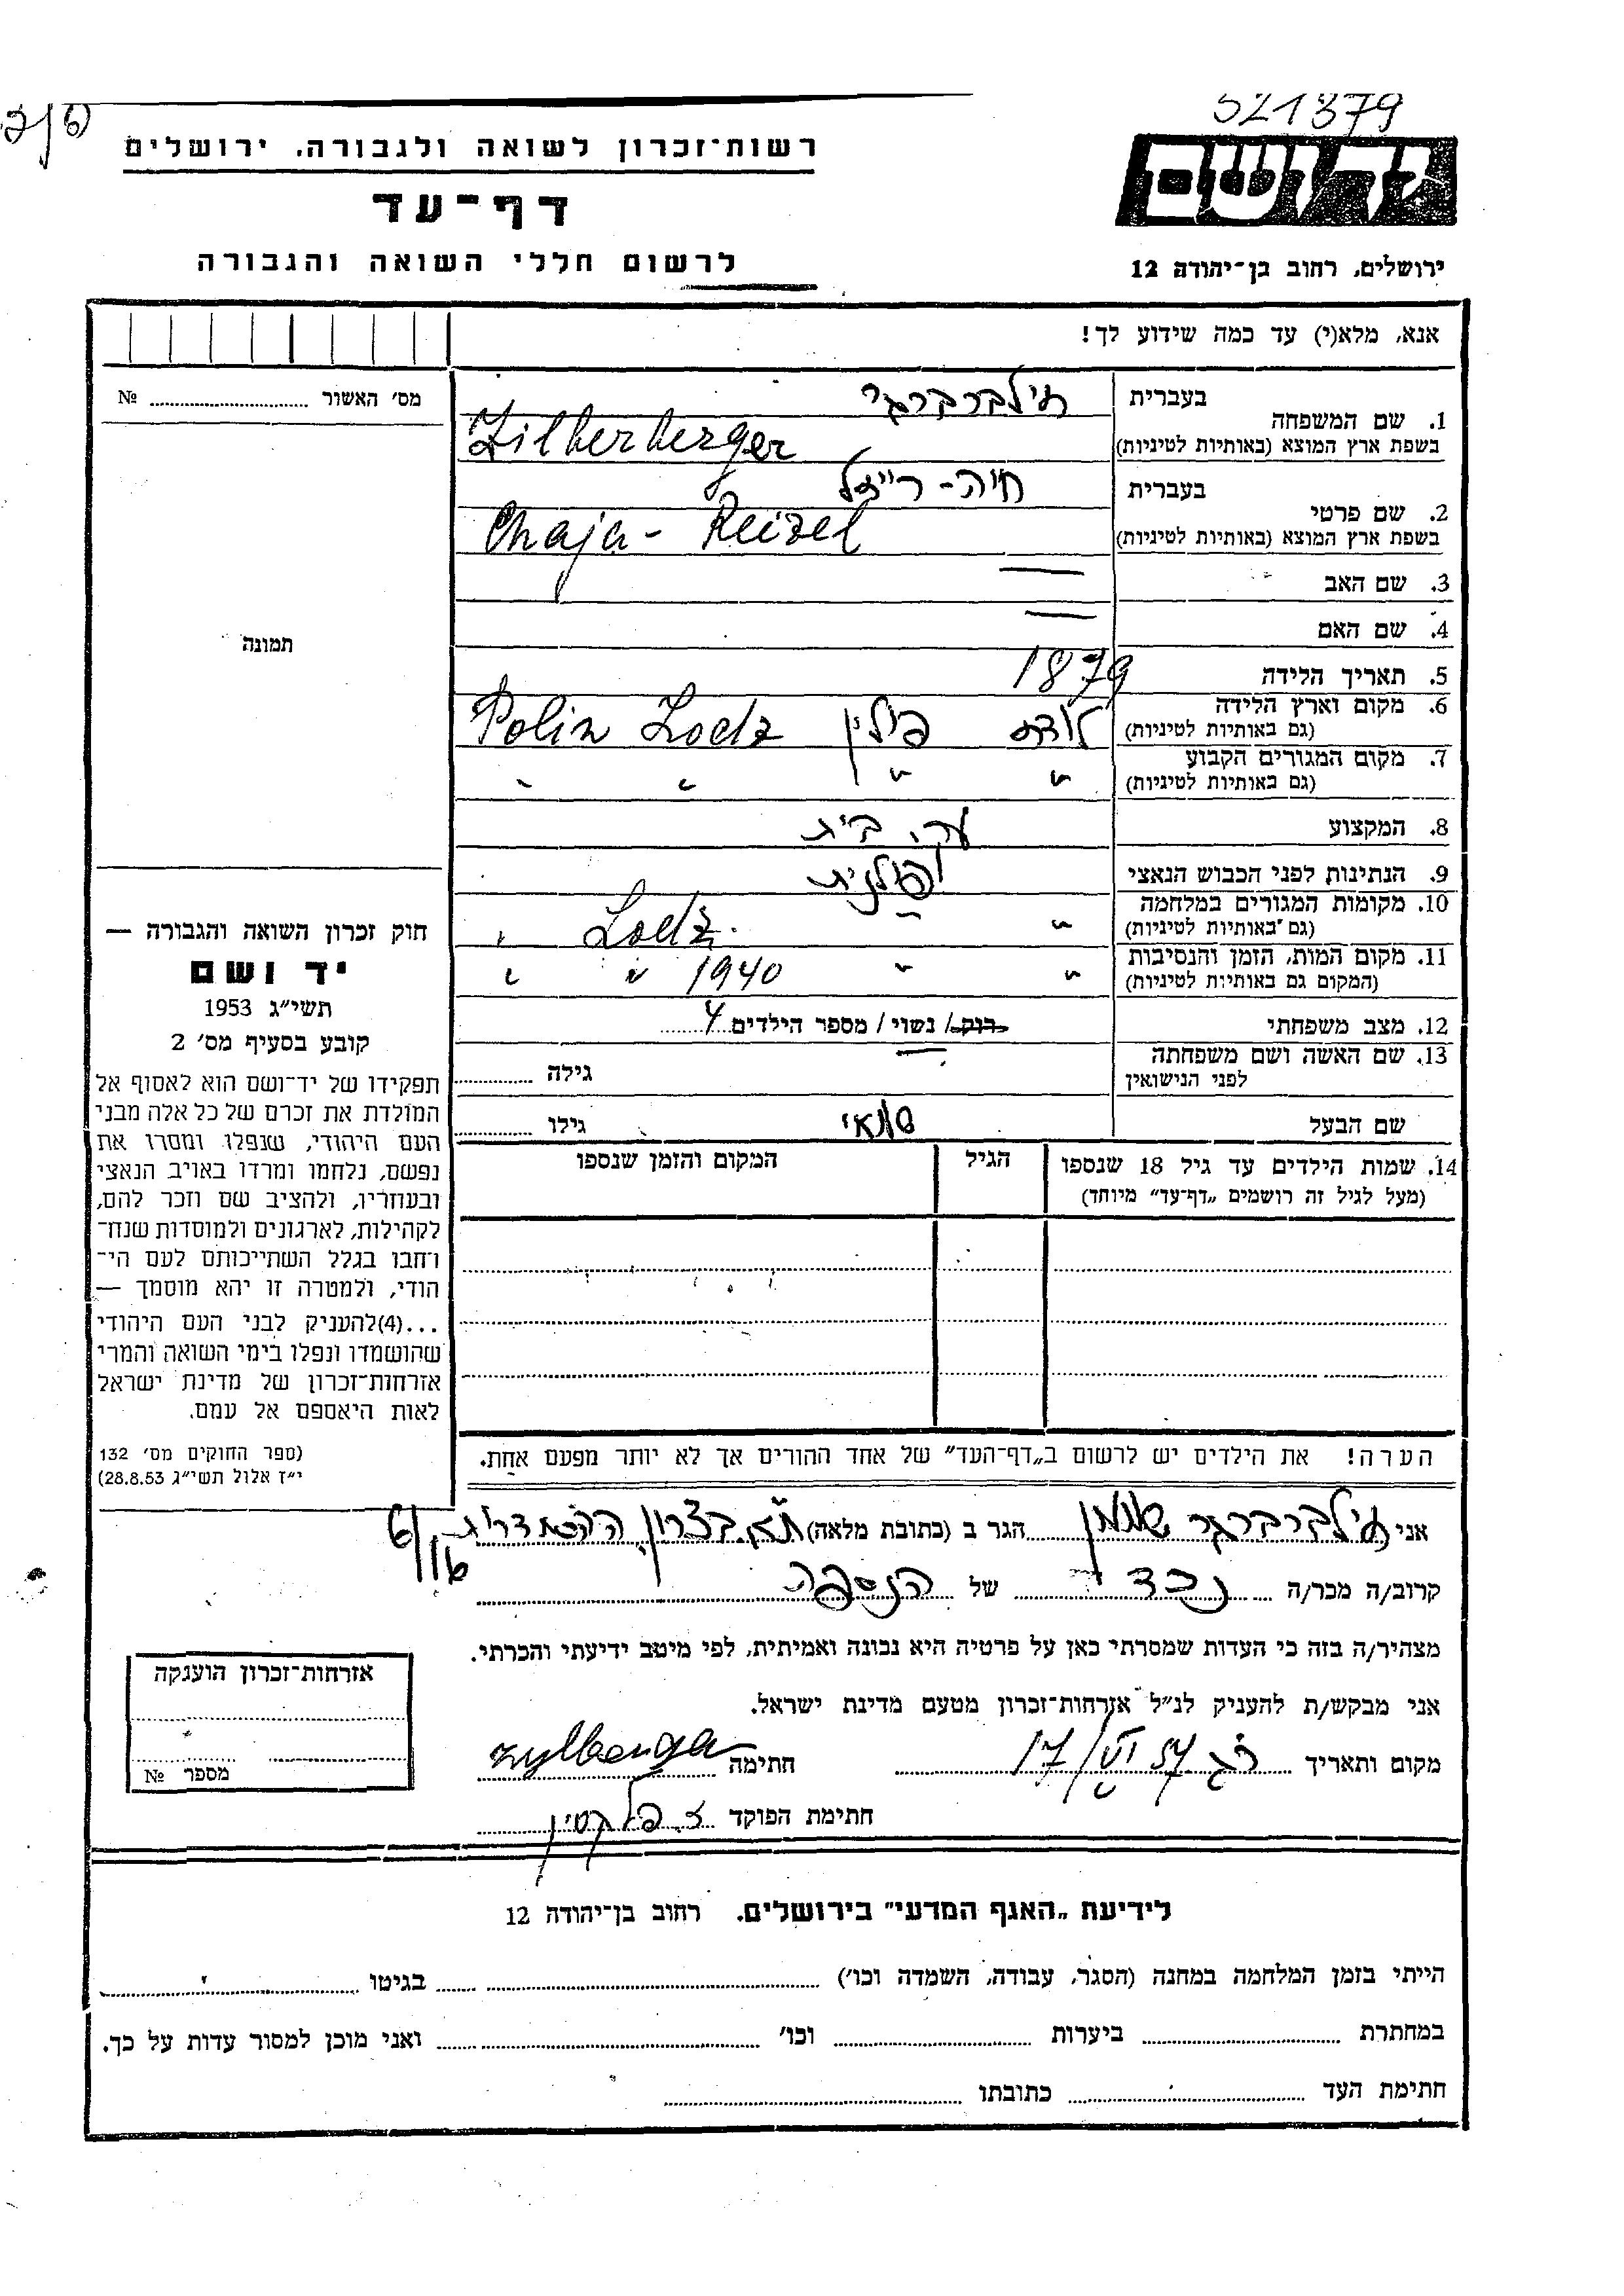 521379
רשות־זכרון לשואה ולגבורה. ירושלים
דף־עד
לרשום חללי השואה והגבורה
יד ושם
ירושלים, רחוב בן־יהודה 12
אנא, מלא(י) עד כמה שידוע לך!
מס׳ האשור № 
תמונה
חוק זכרון השואה והגבורה —
יד ושם
תשי״ג 1953
קובע בסעיף מס׳ 2
תפקידו של יד־ושם הוא לאסוף אל
המולדת את זכרם של כל אלה מבני
העם היהודי, שנפלו ומסרו את
נפשם, נלחמו ומרדו באויב הנאצי
ובעוזריו, ולהציב שם וזכר להם,
לקהילות, לארגונים ולמוסדות שנח־
רחבו בגלל השתייכותם לעם הי־
הודי, ולמטרה זו יהא מוסמך —
...(4)להעניק לבני העם היהודי
שהושמדו ונפלו בימי השואה והמרי
אזרחות־זכרון של מדינת ישראל
לאות היאספם אל עמם.
(ספר החוקים מס׳ 132
י״ז אלול תשי״ג 28.8.53)
1. שם המשפחה בעברית זילברברגר
בשפת ארץ המוצא (באותיות לטיניות) Zilberberger
2. שם פרטי בעברית חיה - רייזל
בשפת ארץ המוצא (באותיות לטיניות) Chaja - Reizel
3. שם האב —
4. שם האם —
5. תאריך הלידה 1879
6. מקום וארץ הלידה (גם באותיות לטיניות) לודז פולין Polin Lodz
7. מקום המגורים הקבוע (גם באותיות לטיניות) " " " "
8. המקצוע עק. בית
9. הנתינות לפני הכבוש הנאצי פולנית
10. מקומות המגורים במלחמה (גם באותיות לטיניות) " " Lodz "
11. מקום המות, הזמן והנסיבות (המקום גם באותיות לטיניות) " " 1940 " "
12. מצב משפחתי רוק/ נשוי/ מספר הילדים 4
13. שם האשה ושם משפחתה לפני הנישואין — גילה
שם הבעל גילו
14. שמות הילדים עד גיל 18 שנספו הגיל המקום והזמן שנספו
(מעל לגיל זה רושמים „דף־עד״ מיוחד)
הערה! את הילדים יש לרשום ב„דף־העד״ של אחד ההורים אך לא יותר מפעם אחת.
אני זילברברגר הגר ב (כתובת מלאה) ת״א בצרון ההסתדרות
קרוב/ה מכר/ה נכד של הנספה
מצהיר/ה בזה כי העדות שמסרתי כאן על פרטיה היא נכונה ואמיתית, לפי מיטב ידיעתי והכרתי.
אני מבקש/ת להעניק לנ״ל אזרחות־זכרון מטעם מדינת ישראל.
מקום ותאריך 17/VI 57 חתימה
חתימת הפוקד
אזרחות־זכרון הוענקה
מספר №
לידיעת „האגף המדעי״ בירושלים. רחוב בן־יהודה 12
הייתי בזמן המלחמה במחנה (הסגר, עבודה, השמדה וכו׳) בגיטו
במחתרת ביערות וכו׳ ואני מוכן למסור עדות על כך.
חתימת העד כתובתו